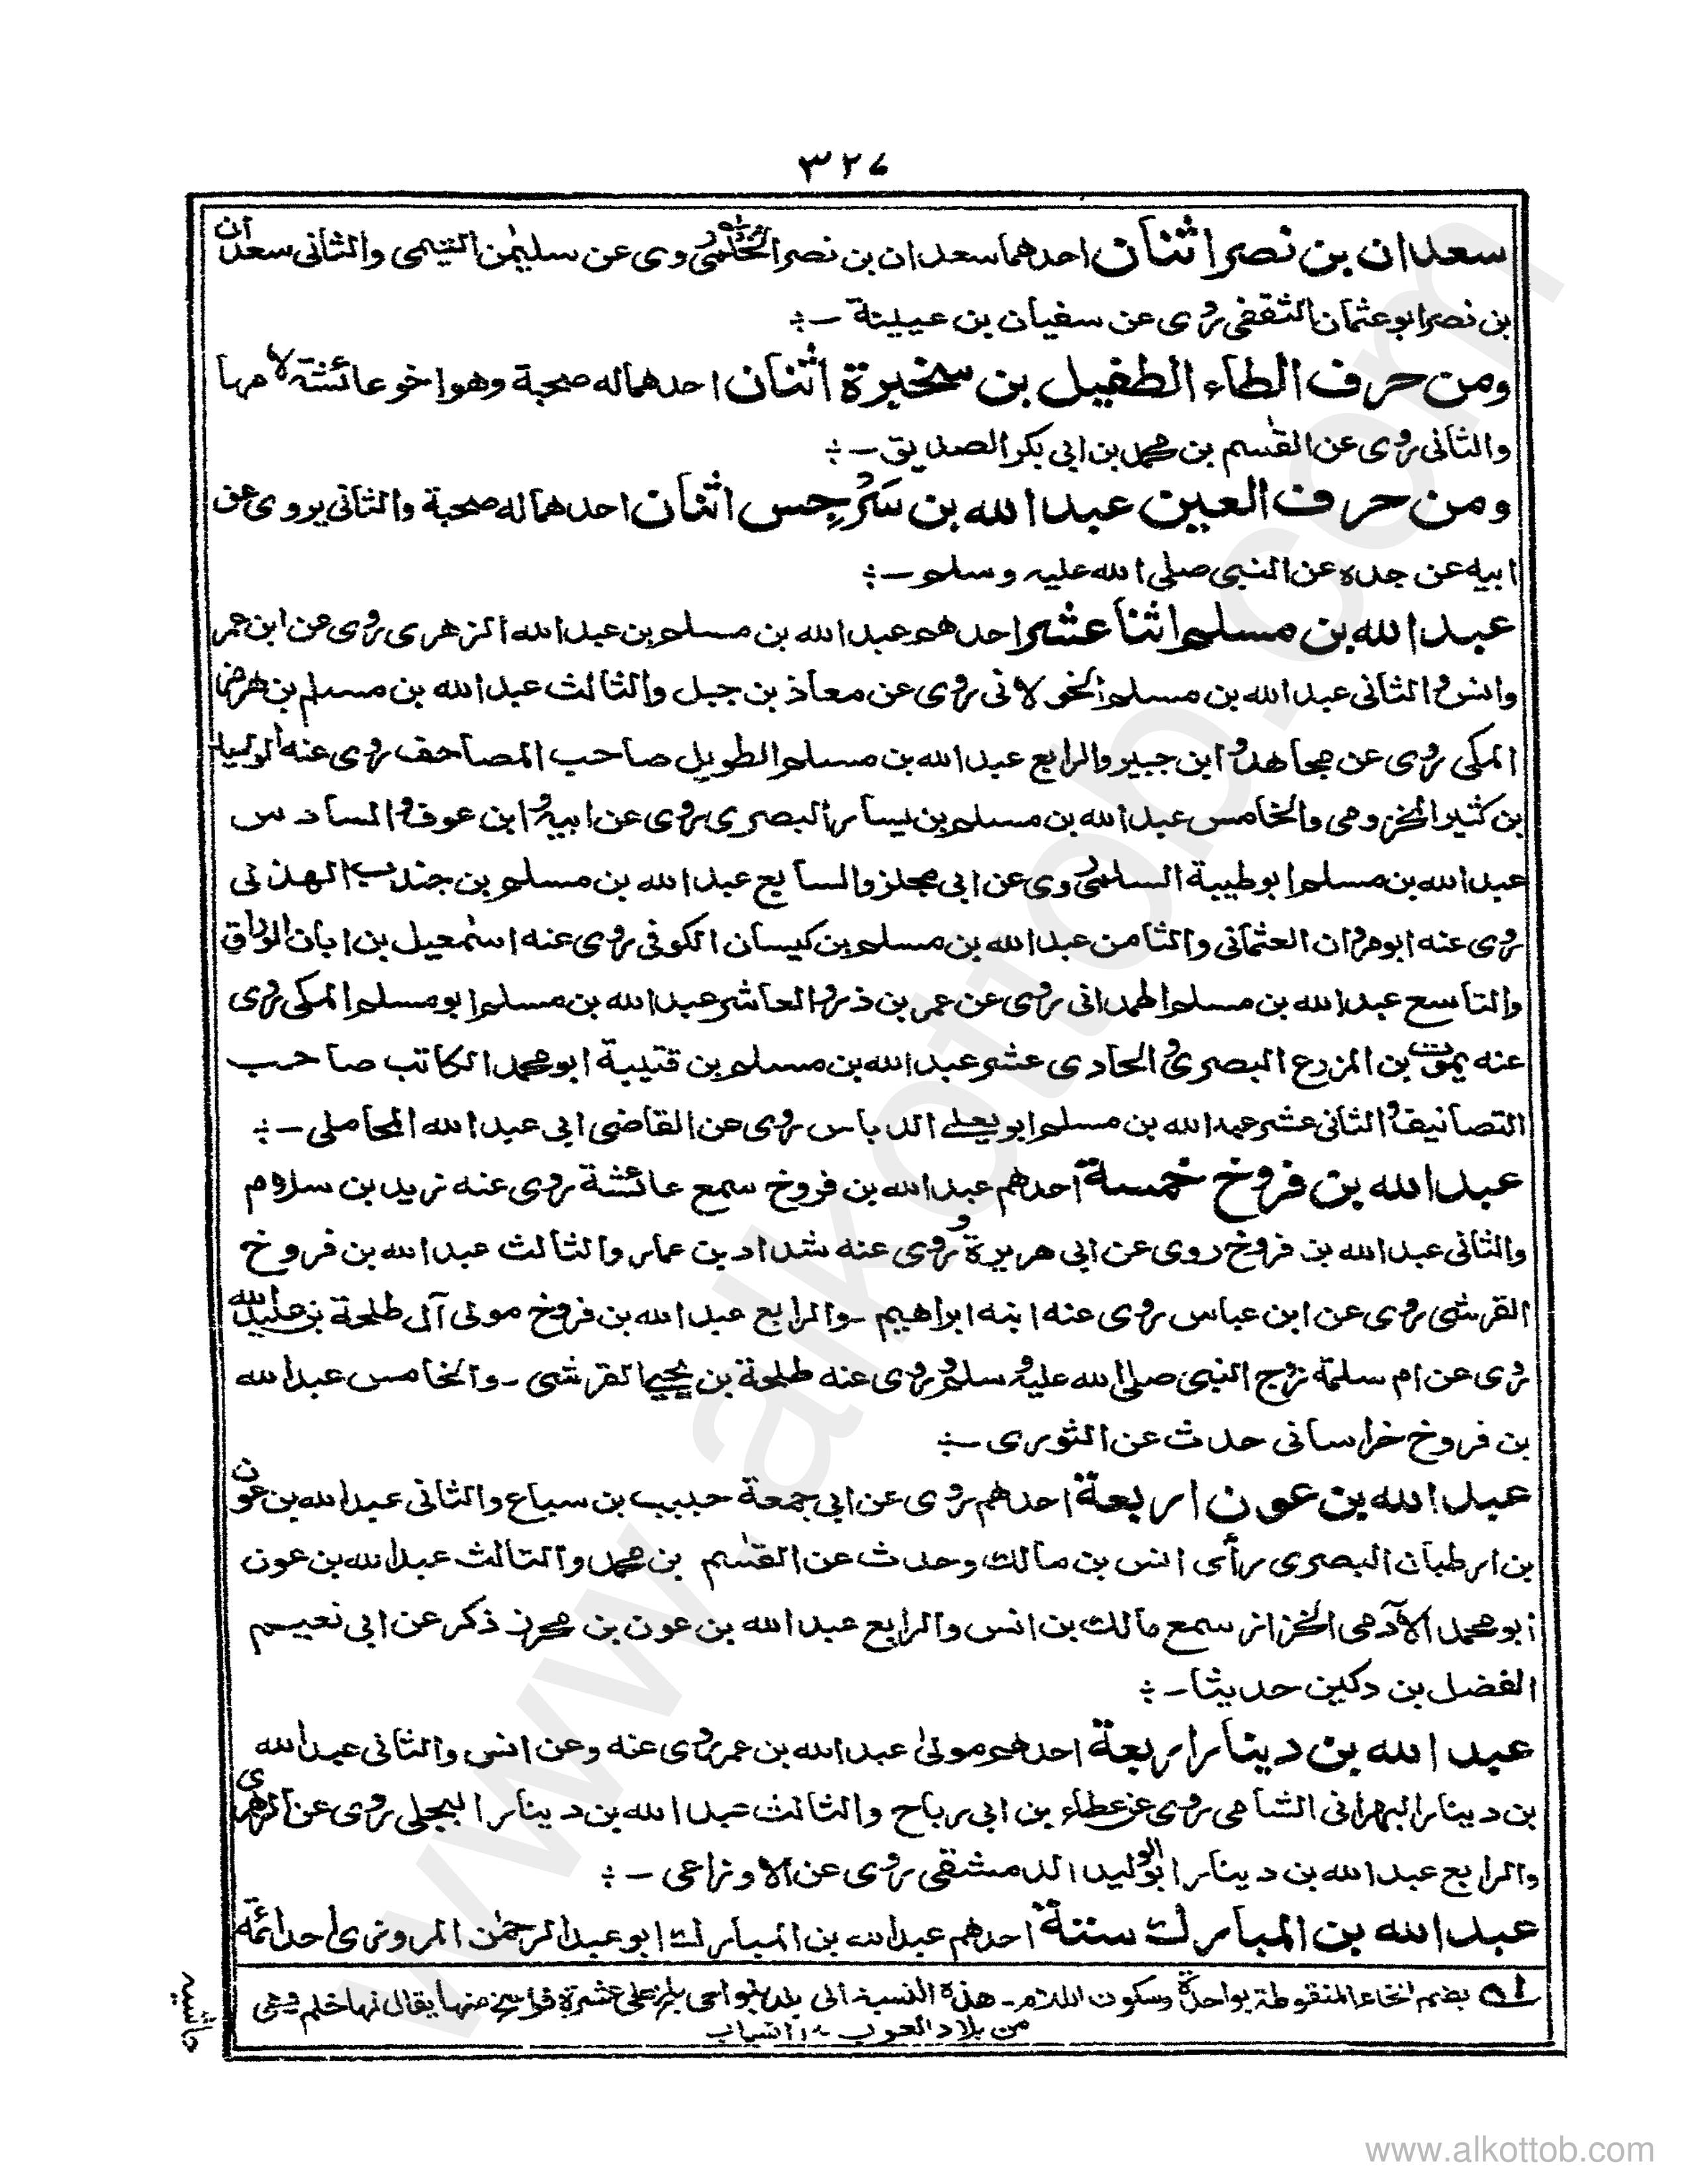 ٣٢٧
سعدان بن نصر اثنان احدهما سعدان بن نصر الخلمى روى عن سليمن التيمى والثانى سعدان
بن نصر ابو عثمان الثقفى روى عن سفيان بن عيينة -
ومن حرف الطاء الطفيل بن سخبرة اثنان احدهما له صحبة وهو اخو عائشة لامها
والثانى روى عن القسم بن محمد بن ابى بكر الصديق -
ومن حرف العين عبد الله بن سَرْجِس اثنان احدهما له صحبة والثانى يروى عن
ابيه عن جده عن النبى صلى الله عليه وسلم -
عبد الله بن مسلم اثنا عشر احدهم عبد الله بن مسلم بن عبد الله الزهرى روى عن ابن عمر
وانس والثانى عبد الله بن مسلم الخولانى روى عن معاذ بن جبل والثالث عبد الله بن مسلم بن هرمز
المكى روى عن مجاهد وابن جبير والرابع عبد الله بن مسلم الطويل صاحب المصاحف روى عنه الوليد
بن كثير المخزومى والخامس عبد الله بن مسلم بن يسار البصرى روى عن ابيه وابن عوف والسادس
عبد الله بن مسلم ابو طيبة السلمى روى عن ابى مجلز والسابع عبد الله بن مسلم بن جندب الهذلى
روى عنه ابو مروان العثمانى والثامن عبد الله بن مسلم بن كيسان الكوفى روى عنه اسمعيل بن ابان الوراق
والتاسع عبد الله بن مسلم الهمدانى روى عن عمر بن ذر والعاشر عبد الله بن مسلم ابو مسلم المكى روى
عنه يموت بن المزرع البصرى والحادى عشر عبد الله بن مسلم بن قتيبة ابو محمد الكاتب صاحب
التصانيف والثانى عشر عبد الله بن مسلم ابو يعلے الدباس روى عن القاضى ابى عبد الله المحاملى -
عبد الله بن فروخ خمسة احدهم عبد الله بن فروخ سمع عائشة روى عنه زيد بن سلام
والثانى عبد الله بن فروخ روى عن ابى هريرة وروى عنه شداد بن عمار والثالث عبد الله بن فروخ
القرشى روى عن ابن عباس روى عنه ابنه ابراهيم - والرابع عبد الله بن فروخ مولى آل طلحة بن عبيد الله
روى عن ام سلمة زوج النبى صلى الله عليه وسلم وروى عنه طلحة بن يحيى القرشى - والخامس عبد الله
بن فروخ خراسانى حدث عن الثورى -
عبد الله بن عون اربعة احدهم روى عن ابى جمعة حبيب بن سباع والثانى عبد الله بن عون
بن ارطبان البصرى رأى انس بن مالك وحدث عن القسم بن محمد والثالث عبد الله بن عون
ابو محمد الآدمى الخزاز سمع مالك بن انس والرابع عبد الله بن عون بن محرز ذكر عن ابى نعيم
الفضل بن دكين حديثا -
عبد الله بن دينار اربعة احدهم مولى عبد الله بن عمر روى عنه وعن انس والثانى عبد الله
بن دينار البهرانى الشامى روى عن عطاء بن ابى رباح والثالث عبد الله بن دينار البجلى روى عن الزهرى
والرابع عبد الله بن دينار ابو الوليد الدمشقى روى عن الاوزاعى -
عبد الله بن المبارك ستة احدهم عبد الله بن المبارك ابو عبد الرحمن المروزى احد ائمة
بضم الخاء المنقوطة بواحدة وسكون اللام - هذه النسبة الى بلد بنواحى بلخ على عشرة فراسخ منها يقال لها خلم وهى
من بلاد العرب - انساب
حاشيه
www.alkottob.com
www.alkottob.com